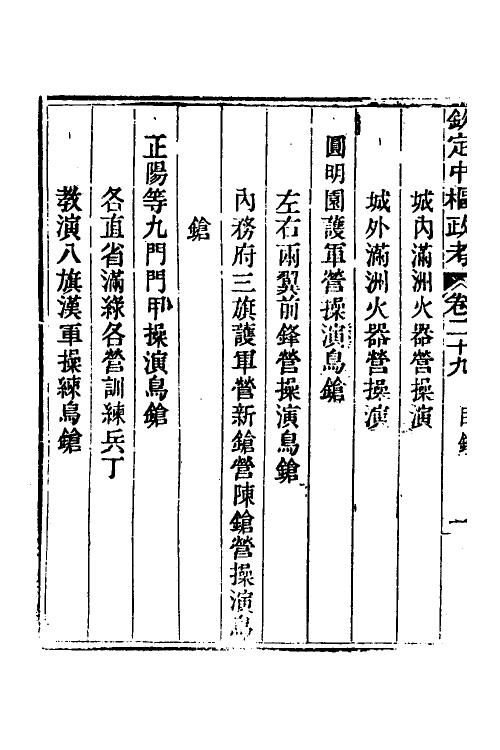 欽定中樞政考 卷二十九 目錄 一
城內滿洲火器營操演
城外滿洲火器營操演
圓明園護軍營操演鳥鎗
左右兩翼前鋒營操演鳥鎗
內務府三旗護軍營新鎗營陳鎗營操演鳥
鎗
正陽等九門門甲操演鳥鎗
各直省滿綠各營訓練兵丁
教演八旗漢軍操練鳥鎗